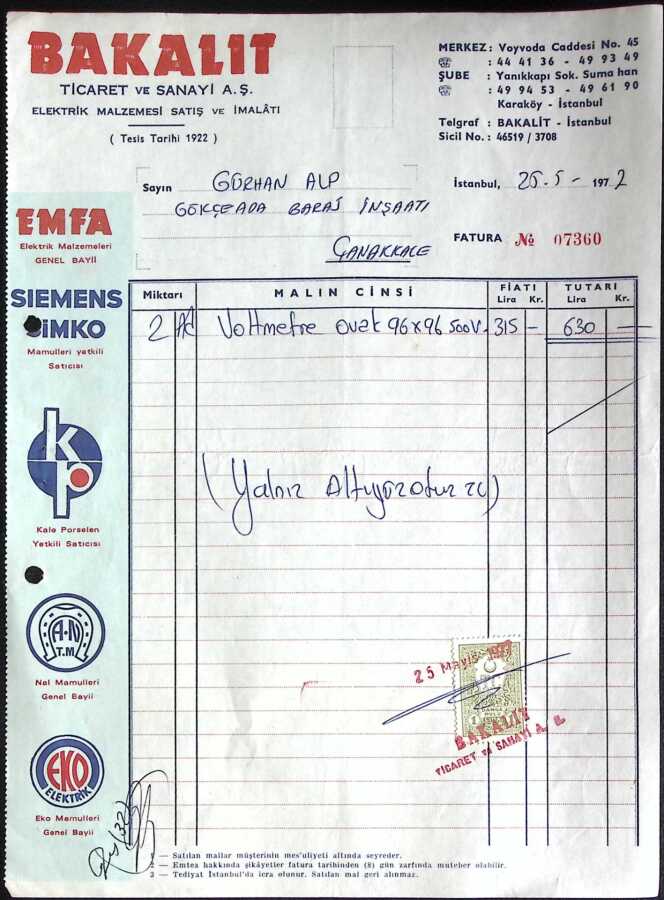 BAKALIT
TİCARET VE SANAYİ A.Ş.
ELEKTRİK MALZEMESİ SATIŞ VE İMALÂTI
( Tesis Tarihi 1922 )
MERKEZ : Voyvoda Caddesi No. 45
☎ : 44 41 36 - 49 93 49
ŞUBE : Yanıkkapı Sok. Suma han
☎ : 49 94 53 - 49 61 90
Karaköy - İstanbul
Telgraf : BAKALİT - İstanbul
Sicil No. : 46519 / 3708
Sayın GÜRHAN ALP
GÖKÇEADA BARAJ İNŞAATI
ÇANAKKALE
İstanbul, 25.5- 1977
FATURA № 07360
EMFA
Elektrik Malzemeleri
GENEL BAYİİ
SIEMENS
SİMKO
Mamulleri yetkili
Satıcısı
kp
Kale Porselen
Yetkili Satıcısı
A-N
T.M.
Nal Mamulleri
Genel Bayii
EKO
ELEKTRİK
Eko Mamulleri
Genel Bayii
Miktarı MALIN CİNSİ FİATI Lira Kr. TUTARI Lira Kr.
2 Ad Voltmetre 96x96 500V. 315 - 630 -
(Yalnız Altıyüzotuz TL)
25 Mayıs 1977
1
BAKALIT
TİCARET ve SANAYİ A. Ş.
1 — Satılan mallar müşterinin mes'uliyeti altında seyreder.
2 — Emtea hakkında şikâyetler fatura tarihinden (8) gün zarfında muteber olabilir.
3 — Tediyat İstanbul'da icra olunur. Satılan mal geri alınmaz.